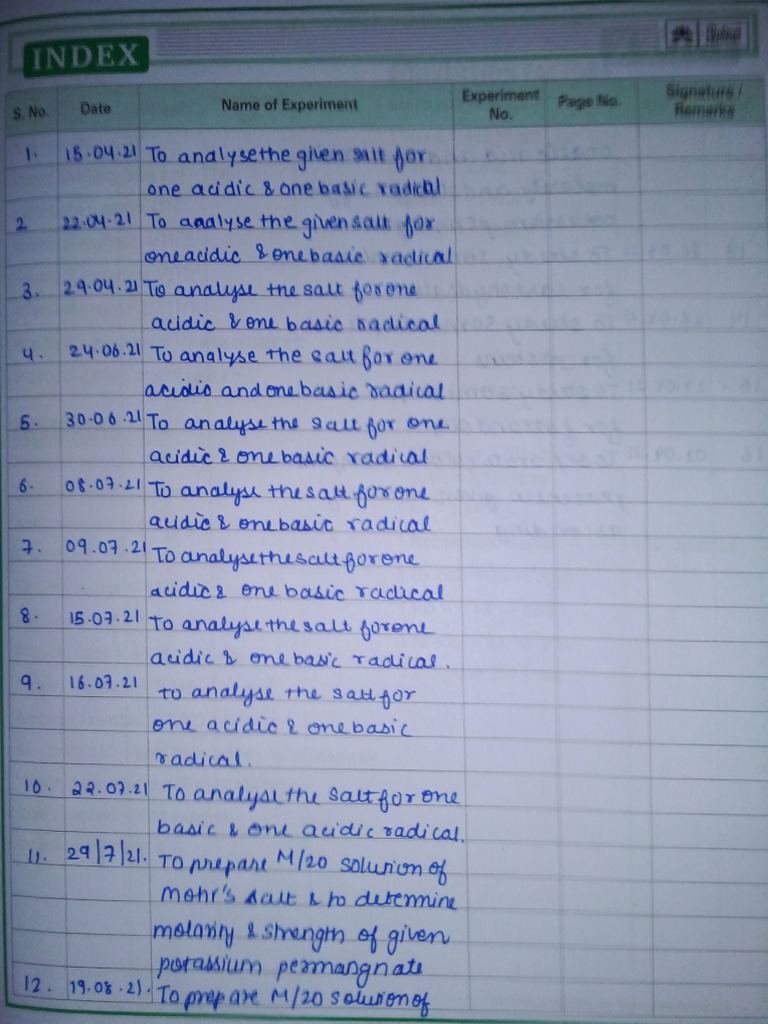 INDEX
S. No. Date Name of Experiment Experiment No. Page No. Signature / Remarks
1. 15.04.21 To analyse the given salt for
one acidic & one basic radical
2 22.04.21 To analyse the given salt for
one acidic & one basic radical
3. 29.04.21 To analyse the salt for one
acidic & one basic radical
4. 24.06.21 To analyse the salt for one
acidic and one basic radical
5. 30.06.21 To analyse the salt for one
acidic & one basic radical
6. 08.07.21 To analyse the salt for one
acidic & one basic radical
7. 09.07.21 To analyse the salt for one
acidic & one basic radical
8. 15.07.21 To analyse the salt for one
acidic & one basic radical.
9. 16.07.21 to analyse the salt for
one acidic & one basic
radical.
10. 22.07.21 To analyse the salt for one
basic & one acidic radical.
11. 29/7/21. To prepare M/20 solution of
Mohr's salt & to determine
molarity & strength of given
potassium permangnate
12. 19.08.21. To prepare M/20 solution of